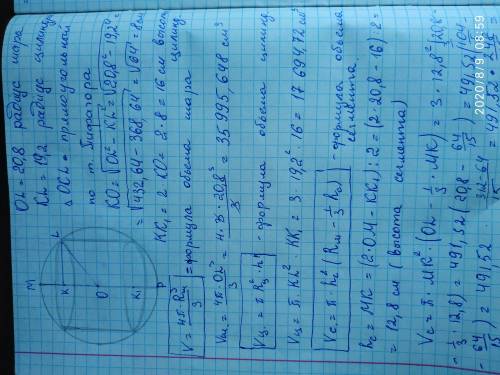 OL = 20,8 радиус шара
KL = 19,2 радиус цилиндра
△ OKL - прямоугольный
по т. Пифагора
KO = √OL² - KL² = √20,8² - 19,2² =
= √432,64 - 368,64 = √64 = 8 см
KK₁ = 2 KO = 2·8 = 16 см высота цилинд
V = 4π·Rш³/3 = формула объема шара
Vш = 4π·OL³/3 = 4·3·20,8³/3 = 35 995,648 см³
Vц = π·Rц²·h - формула объема цилинд.
Vц = π·KL²·KK₁ = 3·19,2²·16 = 17 694,72 см³
Vс = π·hс² (Rш - 1/3 hс) - формула объема сегмента
hс = MK = (2·OM - KK₁) : 2 = (2·20,8 - 16) : 2 =
= 12,8 см (высота сегмента)
Vс = π·MK²·(OL - 1/3·MK) = 3·12,8² (20,8 -
- 1/3·12,8) = 491,52 (20,8 - 64/15) = 491,52 (104/5
- 64/15) = 491,52 ·
M
K
L
O
K₁
P
2020/8/9 08:59